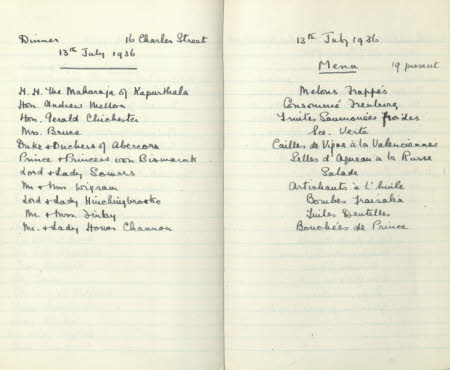 Dinner 16 Charles Street
13th July 1936
H. H. The Maharaja of Kapurthala
Hon. Andrew Mellon
Hon. Gerald Chichester
Mrs. Bruce
Duke & Duchess of Abercorn
Prince & Princess von Bismarck
Lord & Lady Somers
Mr & Mrs Wigram
Lord & Lady Hinchingbrooke
Mr. & Mrs.
Mr. & Lady Honor Channon
13th July 1936
Menu 19 present
Melons Frappés
Consommé
Truites Saumonées froides
Sce. Verte
Cailles de Vigne à la Valenciennes
Selles d'Agneau à la Russe
Salade
Artichauts à l'huile
Bombes
Tuiles Dentelles
Bouchées de Prince